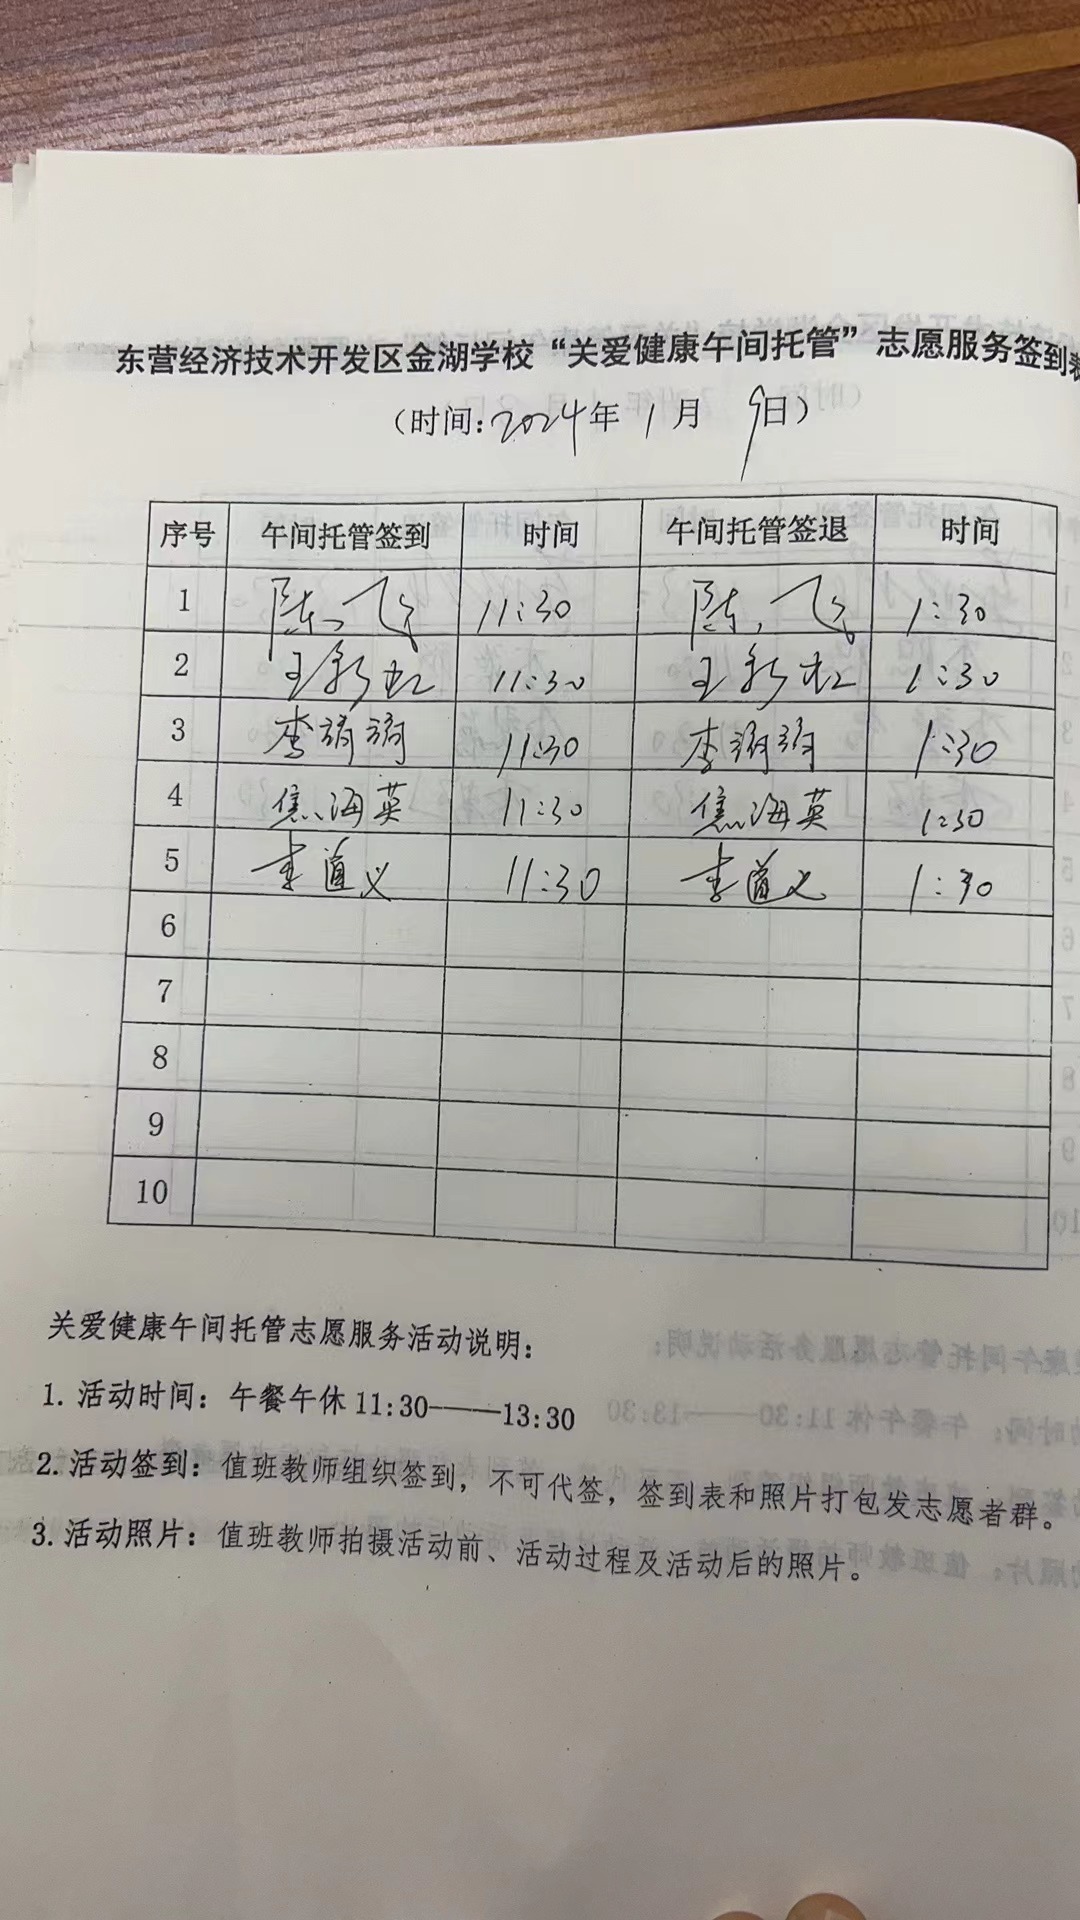 东营经济技术开发区金湖学校“关爱健康午间托管”志愿服务签到表
（时间：2024年1月9日）
序号 午间托管签到 时间 午间托管签退 时间
1 陈飞 11:30 陈飞 1:30
2 王新虹 11:30 王新虹 1:30
3 李娟娟 11:30 李娟娟 1:30
4 焦海英 11:30 焦海英 1:30
5 李道义 11:30 李道义 1:30
6
7
8
9
10
关爱健康午间托管志愿服务活动说明：
1. 活动时间：午餐午休 11:30——13:30
2. 活动签到：值班教师组织签到，不可代签，签到表和照片打包发志愿者群。
3. 活动照片：值班教师拍摄活动前、活动过程及活动后的照片。